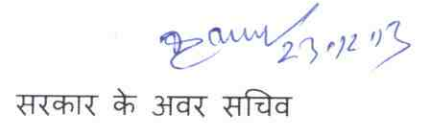 23.12.13
सरकार के अवर सचिव